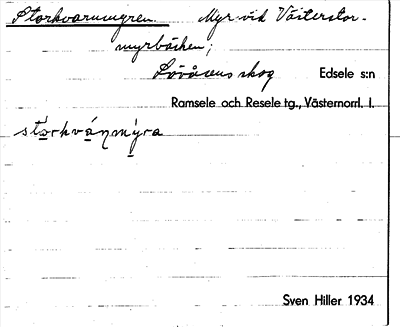 Storkvarnmyren. Myr vid Västerstor-
myrbäcken;
Lövåsens skog Edsele s:n
Ramsele och Resele tg., Västernorrl. l.
storkvánmýra
Sven Hiller 1934